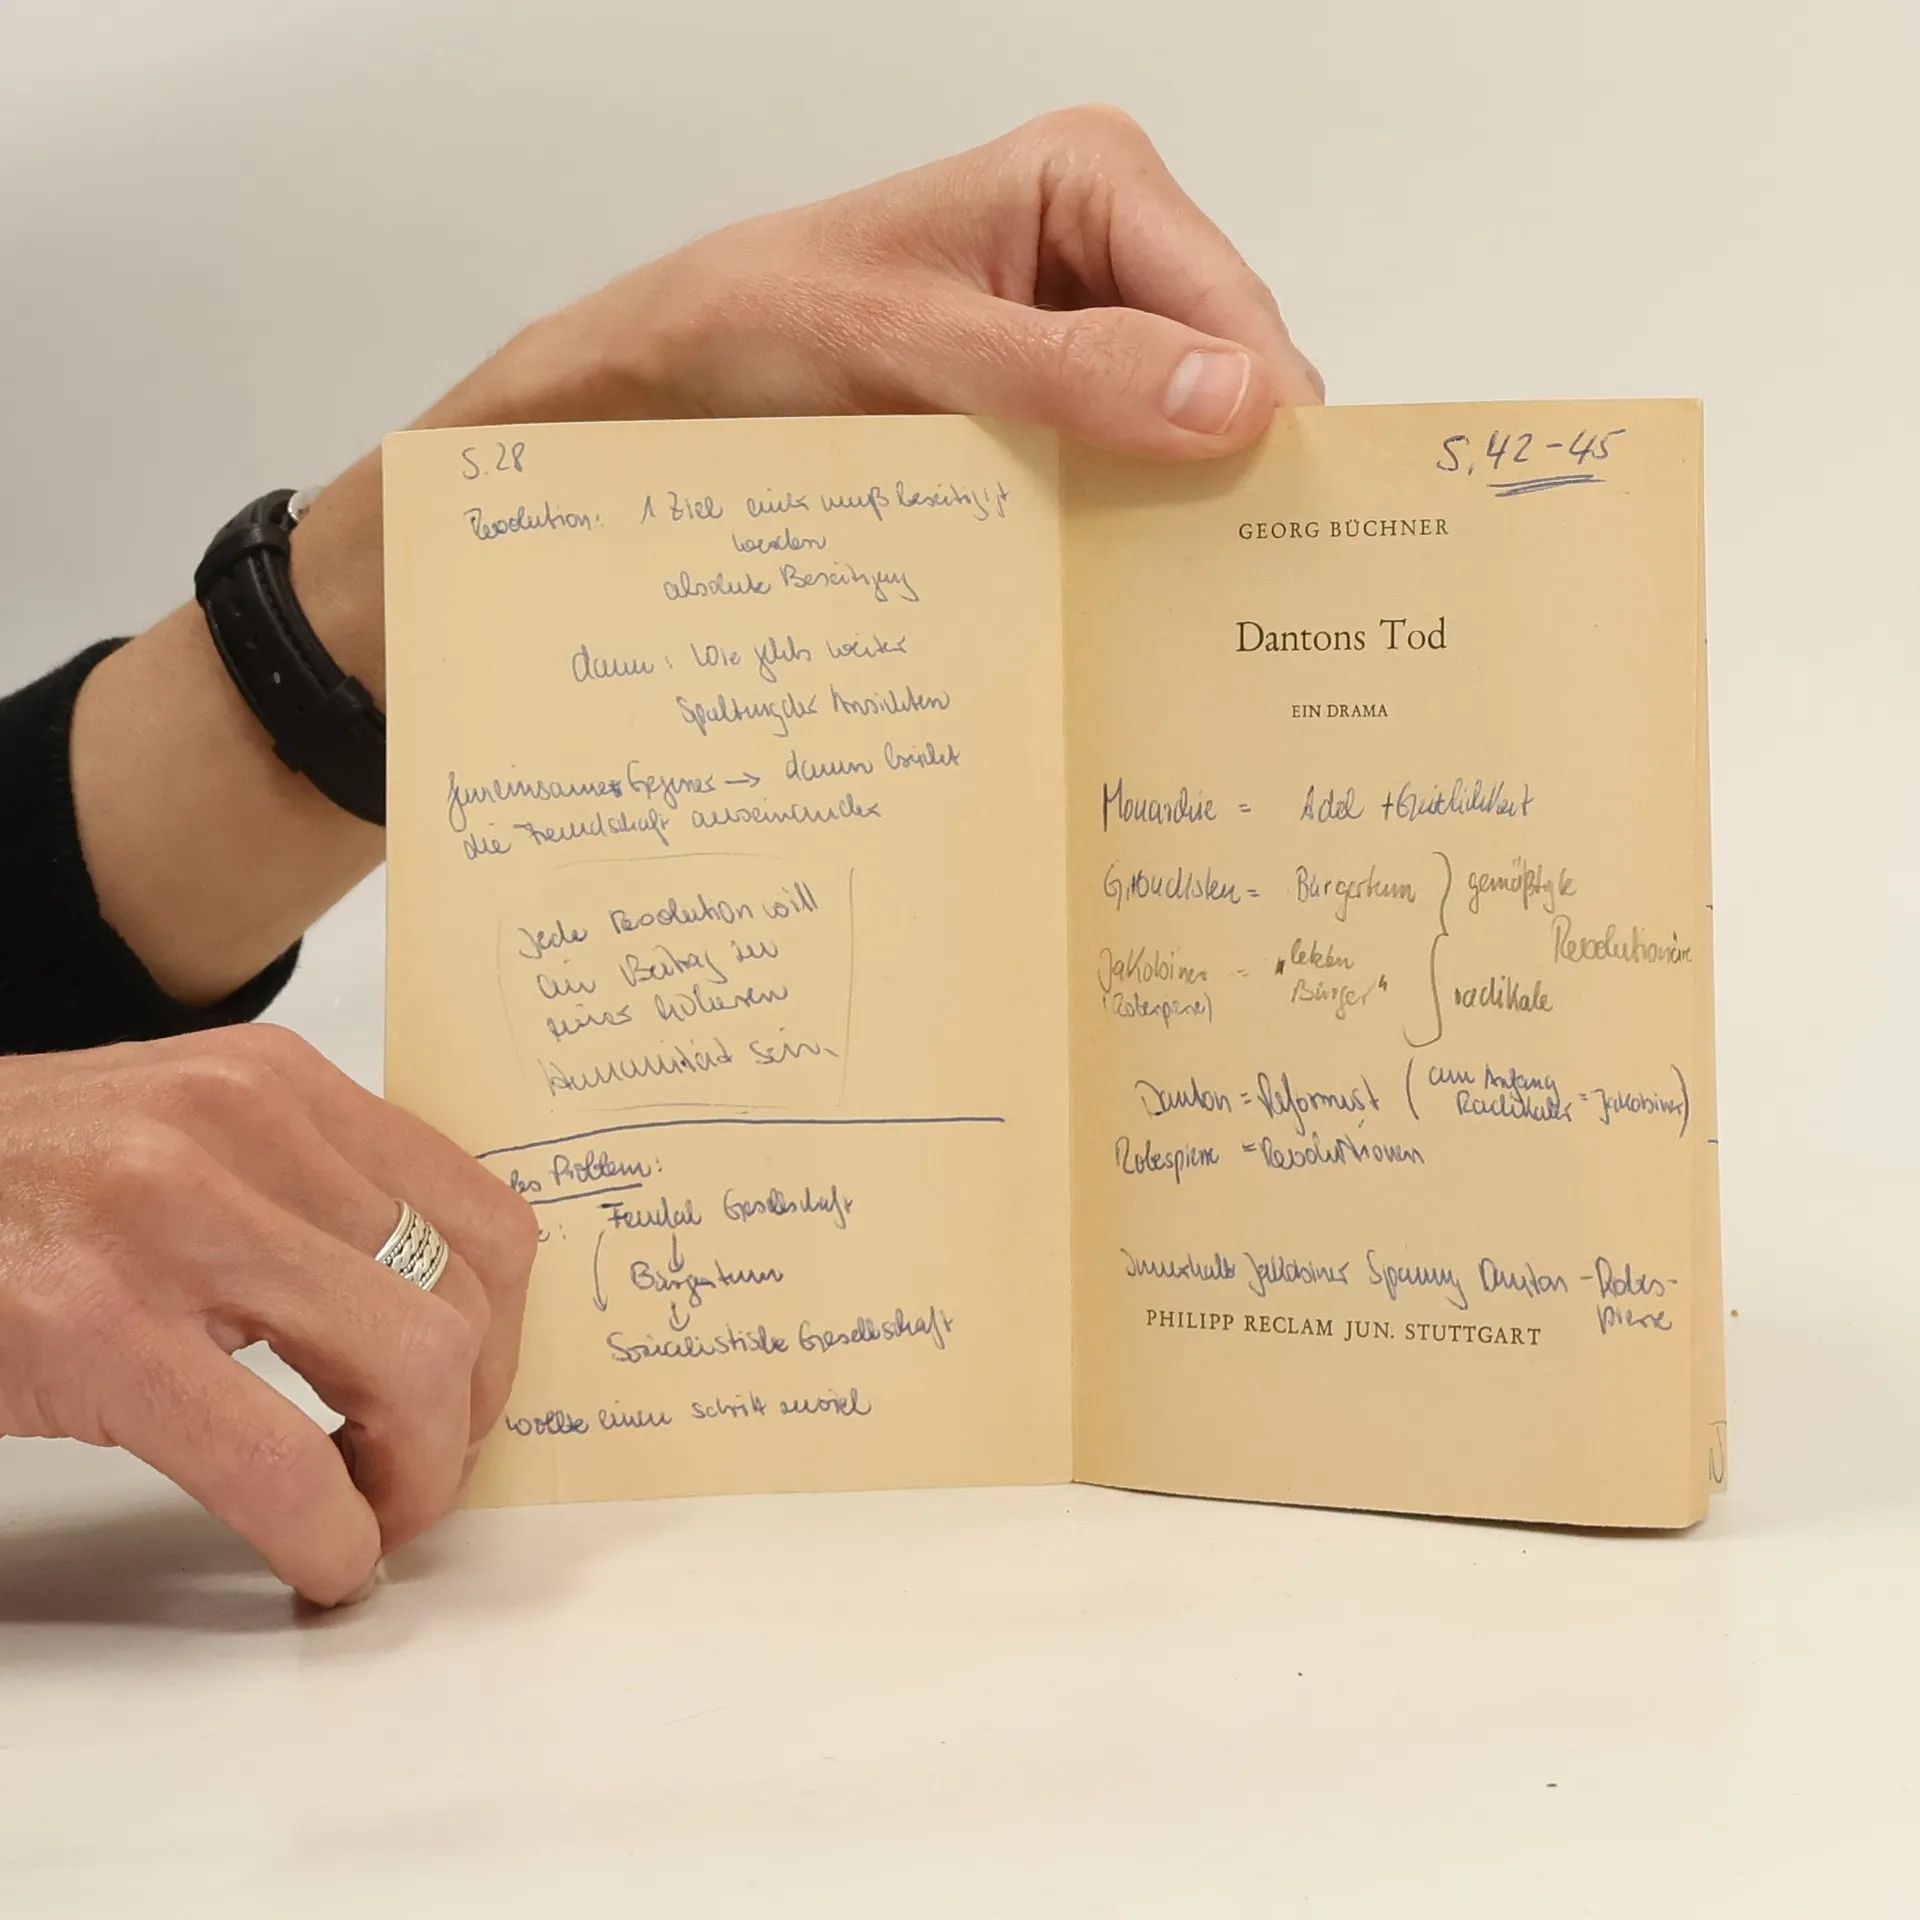 S. 28
Revolution: 1 Ziel einer muß beseitigt
werden
absolute Beseitigung
dann: Wie gehts weiter
Spaltung der Ansichten
gemeinsamer Gegner → dann bricht
die Freundschaft auseinander
Jede Revolution will
ein Beitrag zu
einer höheren
Humanität sein.
Problem:
Feudal Gesellschaft
↓
Bürgertum
↓
Sozialistische Gesellschaft
wollte einen schritt zuviel
S. 42-45
GEORG BÜCHNER
Dantons Tod
EIN DRAMA
Monarchie = Adel + Geistlichkeit
Girondisten = Bürgertum } gemäßigte
Revolutionäre
Jakobiner = "letzten
(Robespierre) Bürger" radikale
Danton = Reformist (am Anfang
Radikaler = Jakobiner)
Robespierre = Revolutionär
Innerhalb Jakobiner Spannung Danton - Robes-
pierre
PHILIPP RECLAM JUN. STUTTGART